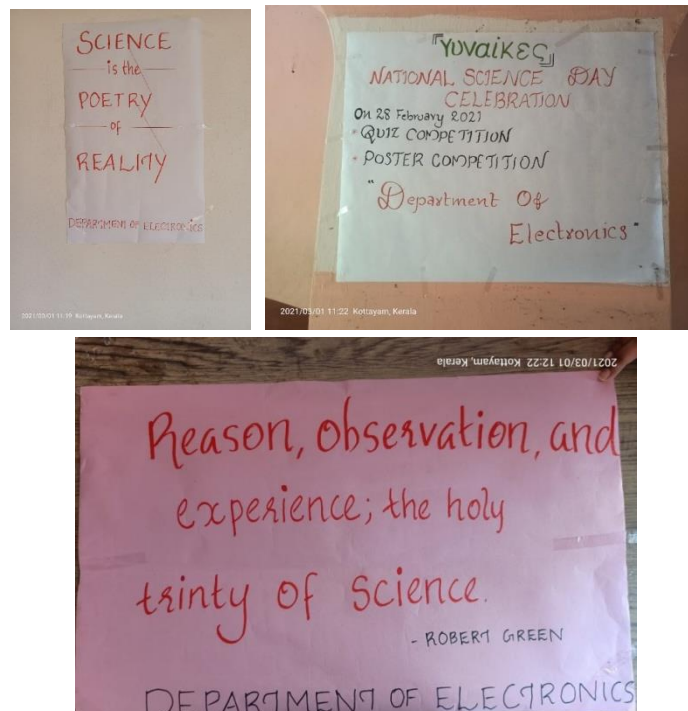 SCIENCE
is the
POETRY
of
REALITY
DEPARTMENT OF ELECTRONICS
2021/03/01 11:19 Kottayam, Kerala
『Υυναίκες』
NATIONAL SCIENCE DAY
CELEBRATION
On 28 February 2021
* QUIZ COMPETITION
* POSTER COMPETITION
"Department Of
Electronics"
2021/03/01 11:22 Kottayam, Kerala
2021/03/01 12:22 Kottayam, Kerala
Reason, observation, and
experience; the holy
trinty of Science.
- ROBERT GREEN
DEPARTMENT OF ELECTRONICS